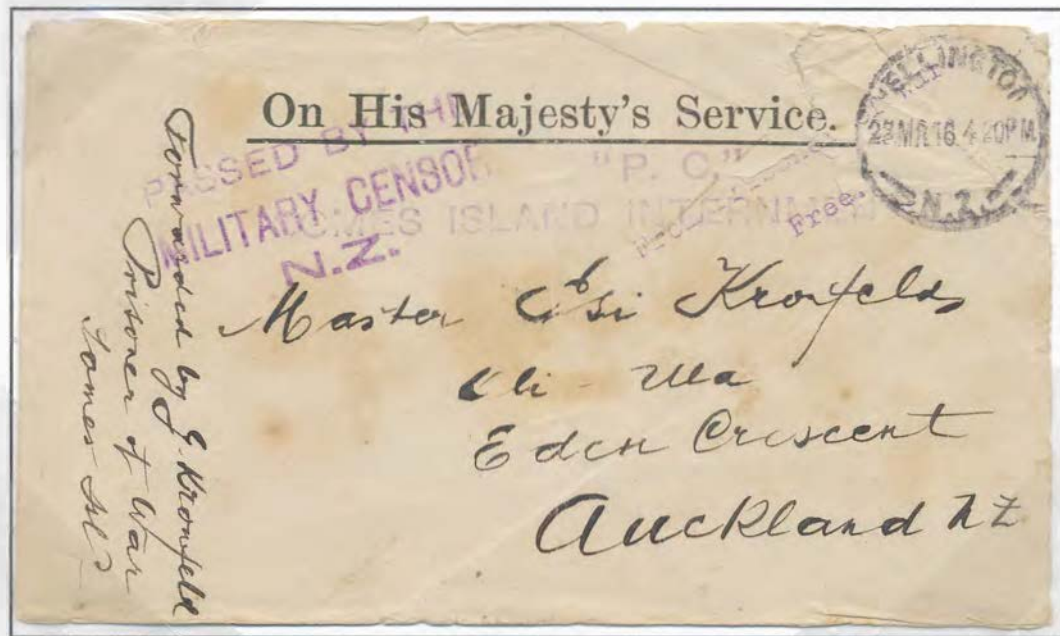 On His Majesty's Service.
PASSED BY THE
MILITARY CENSOR
N.Z.
"P. C."
SOMES ISLAND INTERNMEN
War
Free.
WELLINGTON
27 MR 16 4 20 PM
N.Z.
Master Kronfeld
Eli - Ula
Eden Crescent
Auckland NZ
Forwarded by G. Kronfeld
Prisoner of War
Somes Isl